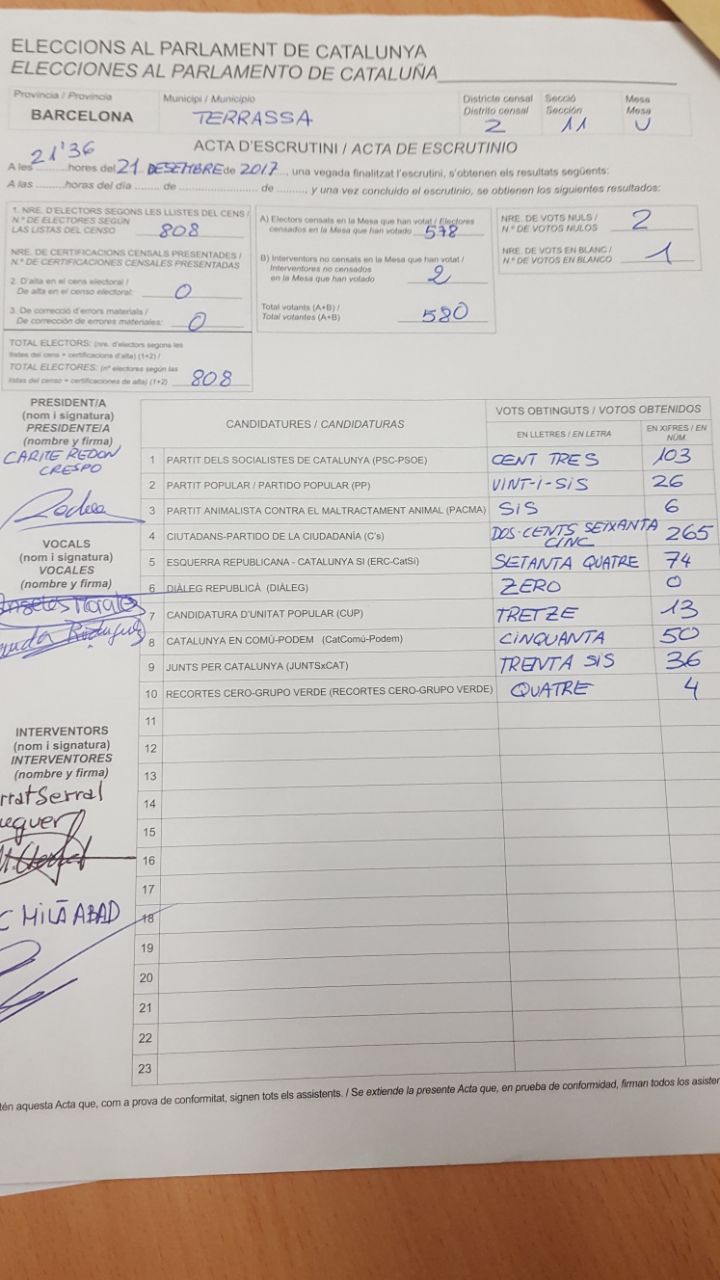 ELECCIONS AL PARLAMENT DE CATALUNYA
ELECCIONES AL PARLAMENTO DE CATALUÑA
Província / Provincia
BARCELONA
Municipi / Municipio
TERRASSA
Districte censal
Distrito censal
2
Secció
Sección
11
Mesa
Mesa
U
ACTA D'ESCRUTINI / ACTA DE ESCRUTINIO
A les 21'36 hores del 21 DESEMBRE de 2017, una vegada finalitzat l'escrutini, s'obtenen els resultats següents:
A las ......... horas del día ........ de ........................ de ........., y una vez concluido el escrutinio, se obtienen los siguientes resultados:
1. NRE. D'ELECTORS SEGONS LES LLISTES DEL CENS /
N.º DE ELECTORES SEGÚN
LAS LISTAS DEL CENSO 808
NRE. DE CERTIFICACIONS CENSALS PRESENTADES /
N.º DE CERTIFICACIONES CENSALES PRESENTADAS
2. D'alta en el cens electoral /
De alta en el censo electoral: 0
3. De correcció d'errors materials /
De corrección de errores materiales: 0
TOTAL ELECTORS: (nre. d'electors segons les
llistes del cens + certificacions d'alta) (1+2) /
TOTAL ELECTORES: (nº electores según las
listas del censo + certificaciones de alta) (1+2) 808
A) Electors censats en la Mesa que han votat / Electores
censados en la Mesa que han votado 578
B) Interventors no censats en la Mesa que han votat /
Interventores no censados
en la Mesa que han votado 2
Total votants (A+B) /
Total votantes (A+B) 580
NRE. DE VOTS NULS /
N.º DE VOTOS NULOS 2
NRE. DE VOTS EN BLANC /
N.º DE VOTOS EN BLANCO 1
PRESIDENT/A
(nom i signatura)
PRESIDENTE/A
(nombre y firma)
CARITE REDON
CRESPO
VOCALS
(nom i signatura)
VOCALES
(nombre y firma)
INTERVENTORS
(nom i signatura)
INTERVENTORES
(nombre y firma)
rratSerral
C MILÀ ABAD
CANDIDATURES / CANDIDATURAS
VOTS OBTINGUTS / VOTOS OBTENIDOS
EN LLETRES / EN LETRA
EN XIFRES / EN NÚM.
1 PARTIT DELS SOCIALISTES DE CATALUNYA (PSC-PSOE) CENT TRES 103
2 PARTIT POPULAR / PARTIDO POPULAR (PP) VINT-I-SIS 26
3 PARTIT ANIMALISTA CONTRA EL MALTRACTAMENT ANIMAL (PACMA) SIS 6
4 CIUTADANS-PARTIDO DE LA CIUDADANÍA (C's) DOS-CENTS SEIXANTA CINC 265
5 ESQUERRA REPUBLICANA - CATALUNYA SI (ERC-CatSí) SETANTA QUATRE 74
6 DIÀLEG REPUBLICÀ (DIÀLEG) ZERO 0
7 CANDIDATURA D'UNITAT POPULAR (CUP) TRETZE 13
8 CATALUNYA EN COMÚ-PODEM (CatComú-Podem) CINQUANTA 50
9 JUNTS PER CATALUNYA (JUNTSxCAT) TRENTA SIS 36
10 RECORTES CERO-GRUPO VERDE (RECORTES CERO-GRUPO VERDE) QUATRE 4
11
12
13
14
15
16
17
18
19
20
21
22
23
tén aquesta Acta que, com a prova de conformitat, signen tots els assistents. / Se extiende la presente Acta que, en prueba de conformidad, firman todos los asisten